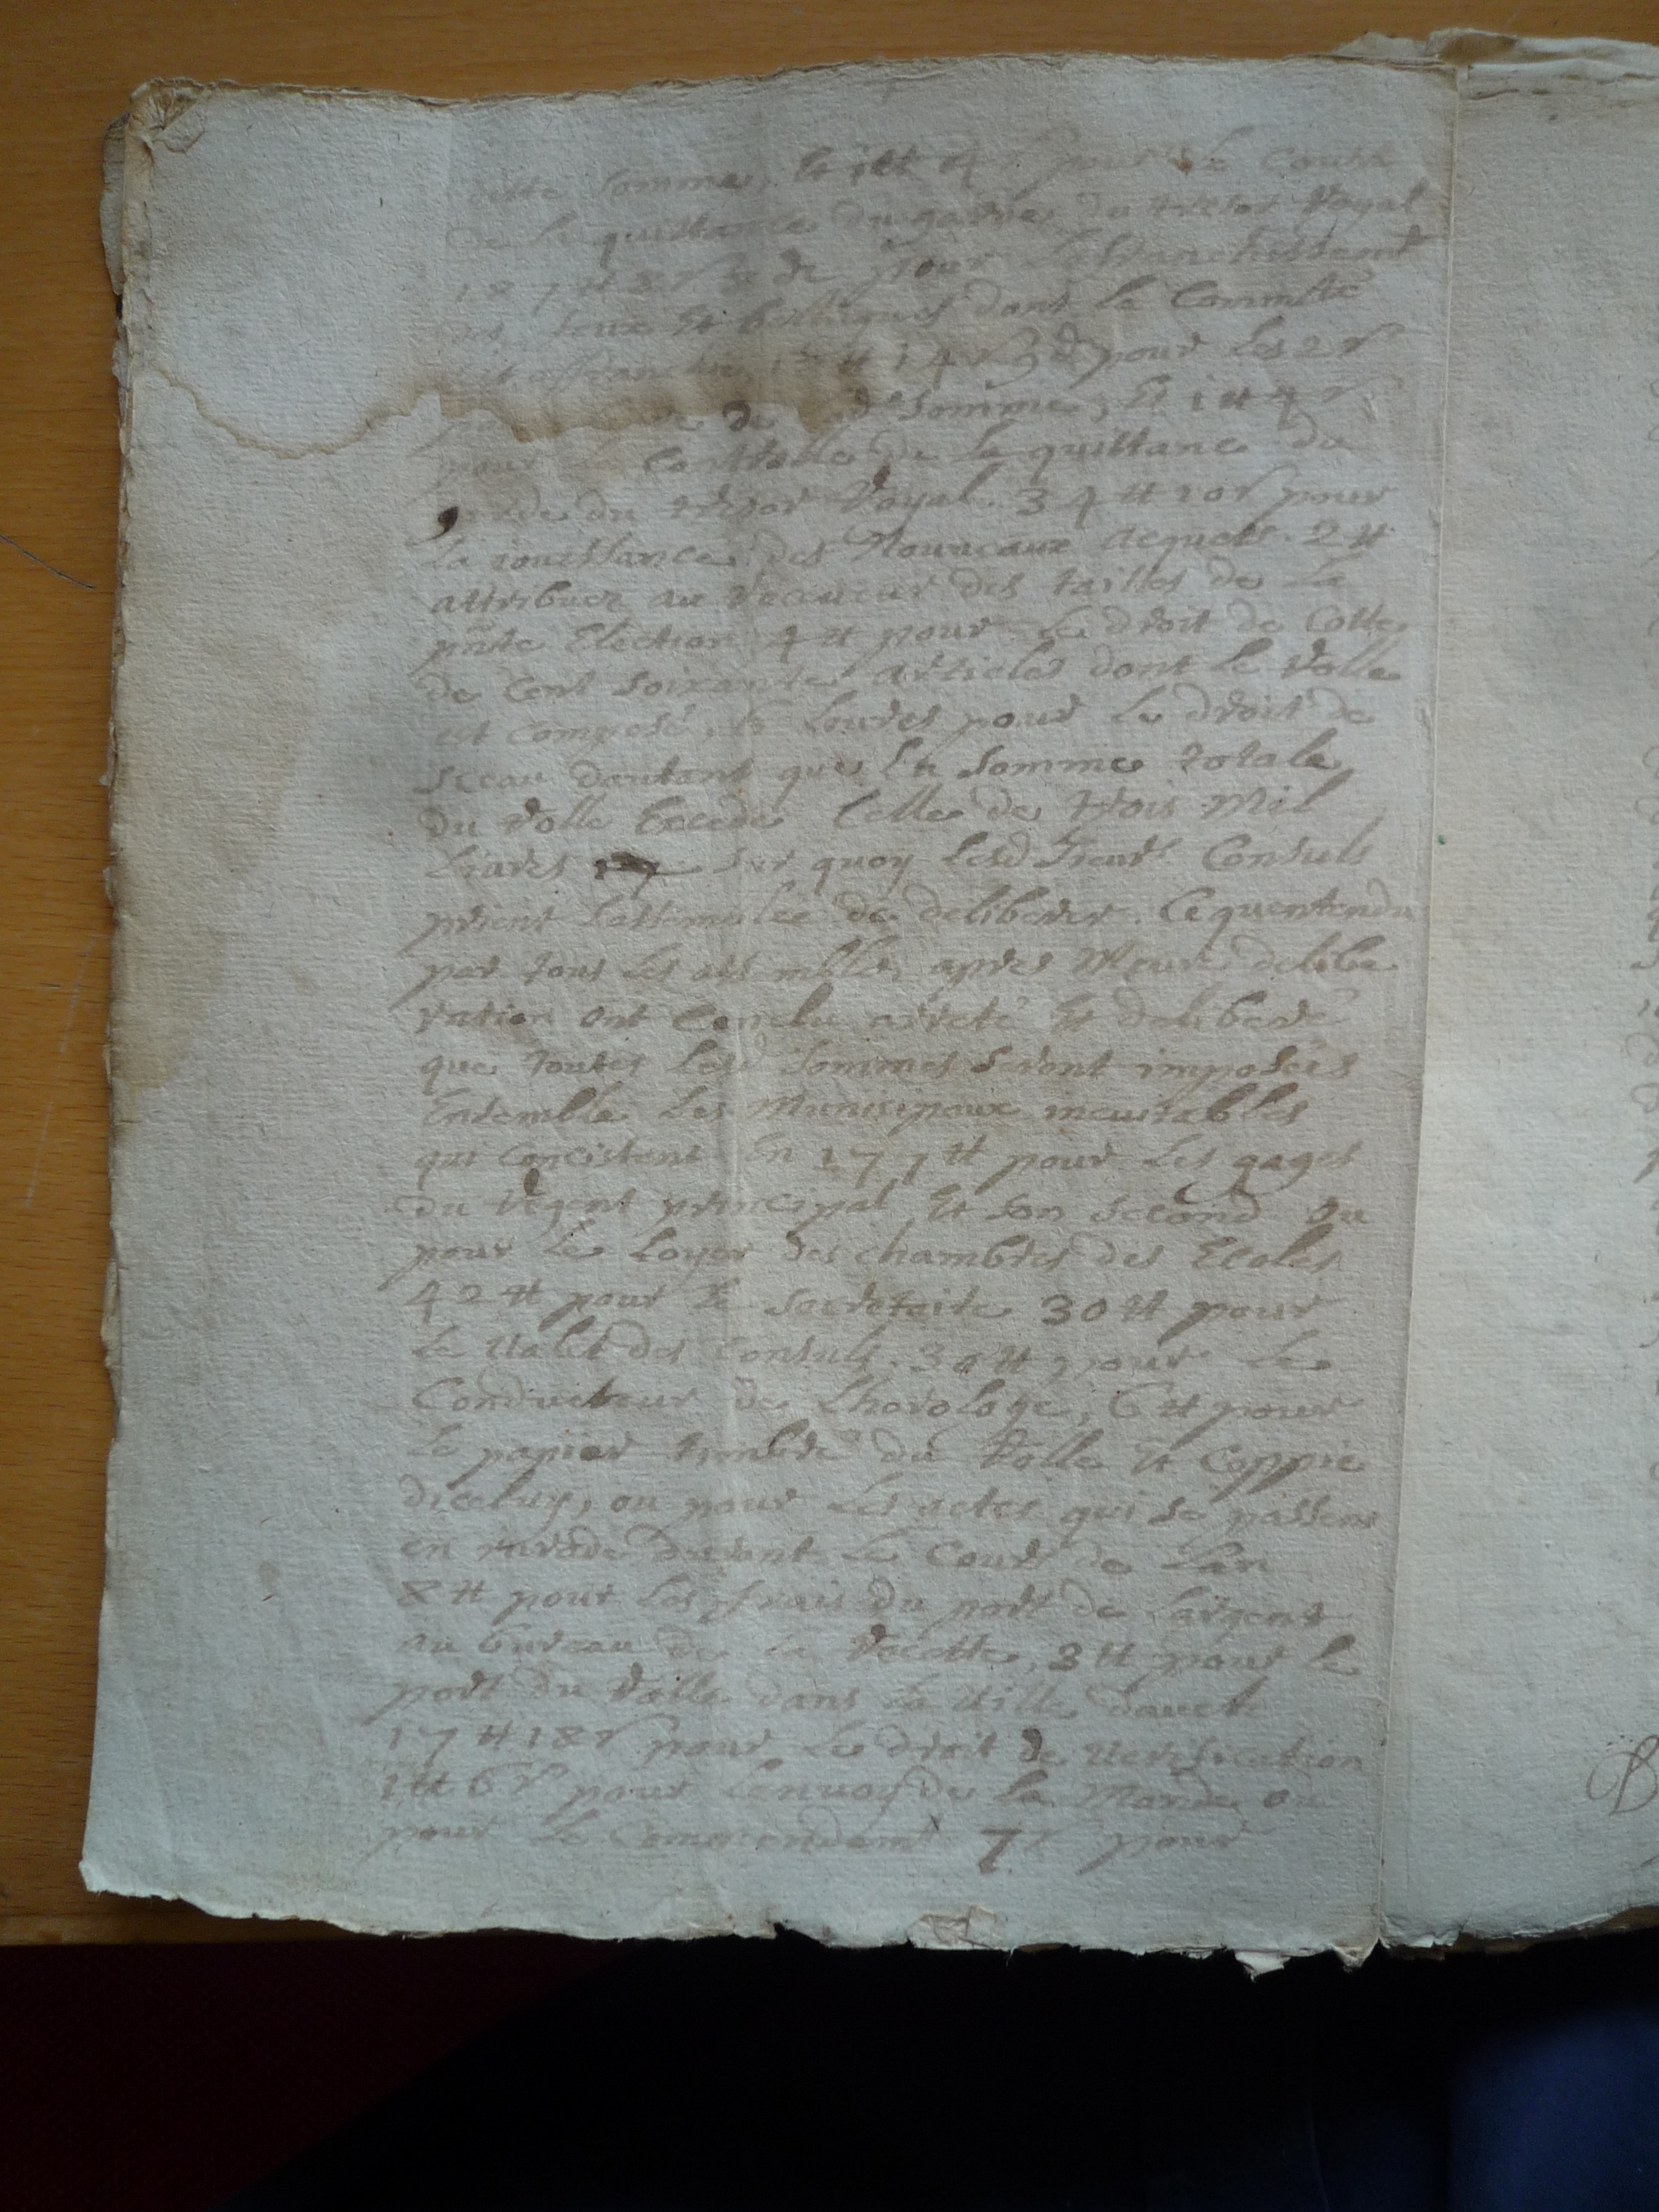 cette somme, Et 1tt 4 s pour le Contr
de la quittance du garde du tresor Royal
187tt 8s de pour laffranchissement
des feux Et belluques dont la Commté
est affranchie, 14s 3d pour les 2 s
de de somme, Et 1tt 4 s
pour le Controlle de la quittance du
garde du tresor Royal. 34tt 10s pour
La iouissance des Nouveaux acquets. 2tt
attribuez au Receueur des tailles de La
pnte Election 4tt pour le droit de Cotte
de Cent soixante articles dont le Rolle
est composé, liures pour Le droit de
sceau dautant que La somme totale
du Rolle Excede Celle de trois Mil
Liures sur quoy Lesd Sieurs Consuls
prient Lassemblée de deliberer. Ce quentendu
par tous Les assemblés, apres Meure delibe
ration ont Conclu arreté Et deliberé
que toutes Lesd sommes seront imposées
Ensemble Les Municipaux ineuitables
qui Concistent En 171tt pour Les gages
du Regent principal Et son second ou
pour Le Loyer des chambres des Ecoles
42tt pour Le secretaire 30tt pour
Le Valet des Consuls. 30tt pour Le
Conducteur de Lhorologe, 6tt pour
Le papier timbré du Rolle Et Coppie
diceluy, ou pour Les actes qui se passent
en durant Le Cours de Lan
8tt pour Les frais du port de Largent
au bureau de La Recette, 3tt pour le
port du Rolle dans La Ville dauch
17tt 18s pour Le droit de Verification
1tt 6s pour Lenuoy de La Mande ou
pour Le Commendemt 7s pour